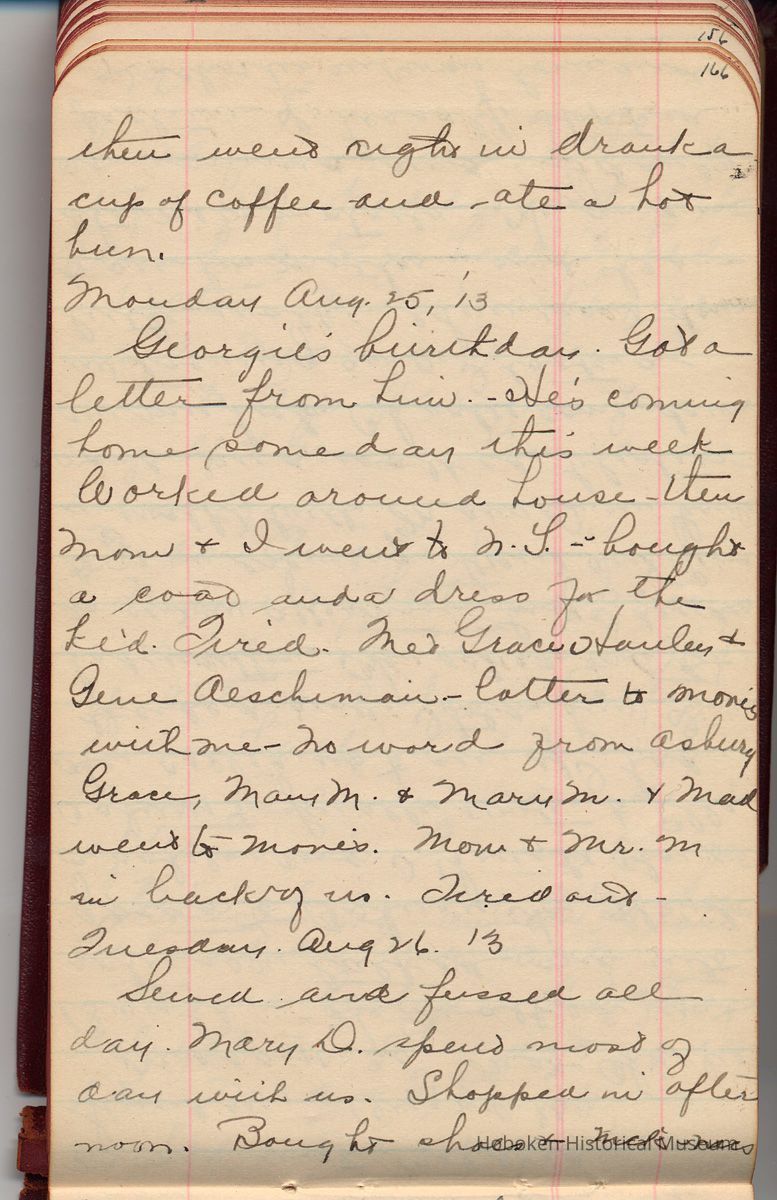 156
166
then went right in drank a
cup of coffee and ate a hot
bun.
Monday Aug. 25, '13
Georgie's birthday. Got a
letter from him. - He's coming
home some day this week
Worked around house - then
Mom + I went to N.Y. - bought
a coat and a dress for the
kid. Tired. Met Grace Hanley +
Gene Aeschiman - latter to movies
with me - no word from Asbury
Grace, Mary M. + Mary M. + Mad
went to movies. Mom + Mr. M
in back of us. Tired out -
Tuesday. Aug 26. '13
Sewed and fussed all
day. Mary D. spent most of
day with us. Shopped in after
noon. Bought shoes +
Hoboken Historical Museum